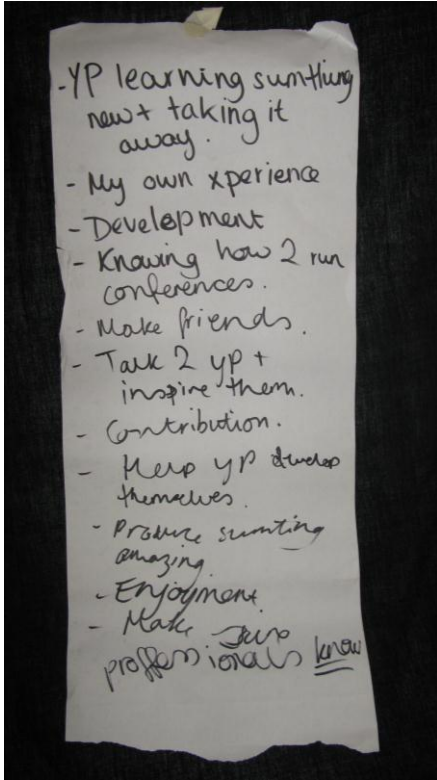 - YP learning sumthing
new + taking it
away.
- My own xperience
- Development
- Knowing how 2 run
conferences.
- Make friends.
- Talk 2 yp +
inspire them.
- Contribution.
- Help yp develop
themselves.
- Produce sumting
amazing.
- Enjoyment.
- Make sure
proffessionals know